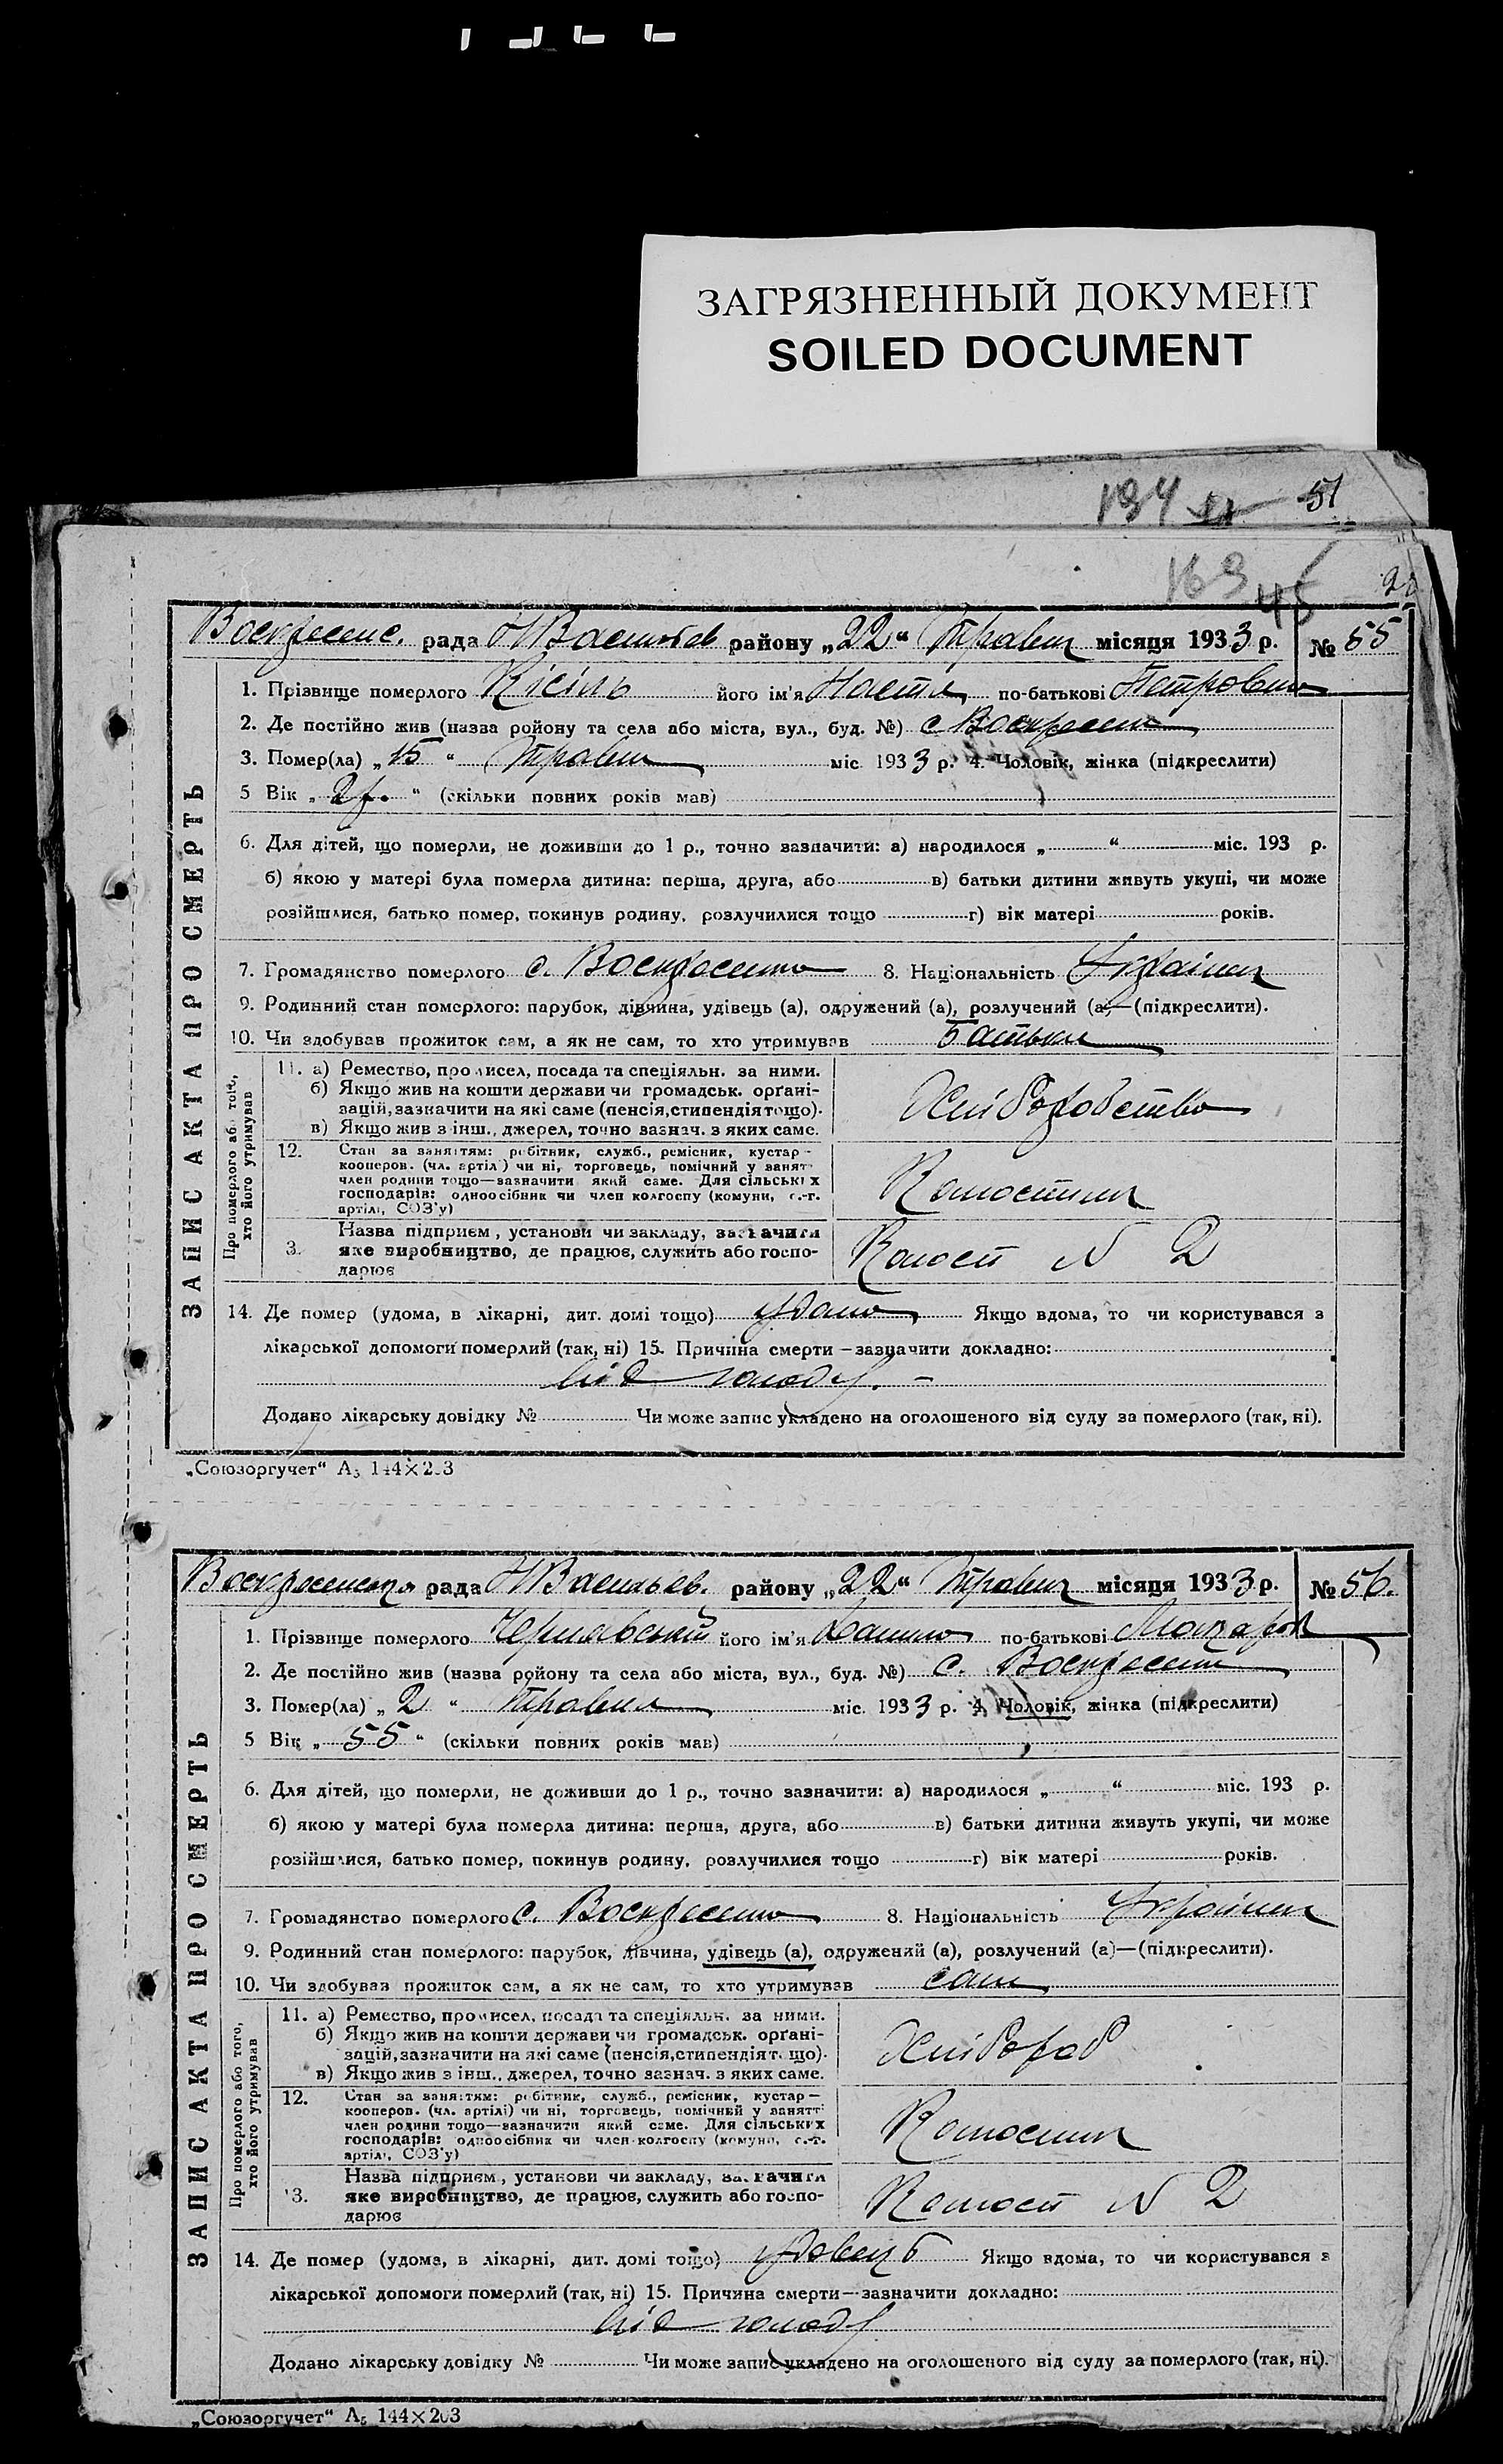 ЗАГРЯЗНЕННЫЙ ДОКУМЕНТ
SOILED DOCUMENT
194 51
163 45
ЗАПИС АКТА ПРО СМЕРТЬ
Воскресенс. рада НВасильев району „22“ Травня місяця 1933 р. № 55
1. Прізвище померлого Кісіль його ім'я Настя по-батькові Петровна
2. Де постійно жив (назва ройону та села або міста, вул., буд. №) с Воскресенка
3. Помер(ла) „15“ Травня міс 1933 р. 4. Чоловік, жінка (підкреслити)
5 Вік „2 р.“ (скільки повних років мав)
6. Для дітей, що померли, не доживши до 1 р., точно зазначити: а) народилося „ “ міс. 193 р.
б) якою у матері була померла дитина: перша, друга, або в) батьки дитини живуть укупі, чи може
розійшлися, батько помер, покинув родину, розлучилися тощо г) вік матері років.
7. Громадянство померлого с. Воскресенка 8. Національність Українка
9. Родинний стан померлого: парубок, дівчина, удівець (а), одружений (а), розлучений (а)—(підкреслити).
10. Чи здобував прожиток сам, а як не сам, то хто утримував Батьки
Про померлого або того, хто його утримував
11. а) Ремество, промисел, посада та спеціяльн. за ними.
б) Якщо жив на кошти держави чи громадськ. органі-
зацій, зазначити на які саме (пенсія, стипендія тощо).
в) Якщо жив з інш., джерел, точно зазнач. з яких саме.
Хліборобство
12. Стан за занятям: робітник, служб., ремісник, кустар—
кооперов. (чл. артілі) чи ні, торговець, помічний у занятт
член родини тощо—зазначити який саме. Для сільських
господарів: одноосібник чи член колгоспу (комуни, с.-г.
артілі, СОЗ'у)
Колгоспник
3. Назва підприєм, установи чи закладу, зазначити
яке виробництво, де працює, служить або госпо-
дарює
Колгосп N 2
14. Де помер (удома, в лікарні, дит. домі тощо) удома Якщо вдома, то чи користувався з
лікарської допомоги померлий (так, ні) 15. Причина смерти—зазначити докладно:
від голоду. —
Додано лікарську довідку № Чи може запис укладено на оголошеного від суду за померлого (так, ні).
„Союзоргучет“ А5 144×203
ЗАПИС АКТА ПРО СМЕРТЬ
Воскресенська рада НВасильев. району „22“ Травня місяця 1933 р. № 56.
1. Прізвище померлого Чернявський його ім'я Данило по-батькові Макаров
2. Де постійно жив (назва ройону та села або міста, вул., буд. №) с. Воскресенк
3. Помер(ла) „2“ Травня міс. 1933 р. 4. Чоловік, жінка (підкреслити)
5 Вік „55“ (скільки повних років мав)
6. Для дітей, що померли, не доживши до 1 р., точно зазначити: а) народилося „ “ міс. 193 р.
б) якою у матері була померла дитина: перша, друга, або в) батьки дитини живуть укупі, чи може
розійшлися, батько помер, покинув родину, розлучилися тощо г) вік матері років.
7. Громадянство померлого с. Воскресенка 8. Національність Українец
9. Родинний стан померлого: парубок, дівчина, удівець (а), одружений (а), розлучений (а)—(підкреслити).
10. Чи здобував прожиток сам, а як не сам, то хто утримував сам
Про померлого або того, хто його утримував
11. а) Ремество, промисел, посада та спеціяльн. за ними.
б) Якщо жив на кошти держави чи громадськ. органі-
зацій, зазначити на які саме (пенсія, стипендія т. що).
в) Якщо жив з інш., джерел, точно зазнач. з яких саме.
Хлібороб
12. Стан за занятям: робітник, служб., ремісник, кустар—
кооперов. (чл. артілі) чи ні, торговець, помічний у занятті
член родини тощо—зазначити який саме. Для сільських
господарів: одноосібник чи член колгоспу (комуни, с.-г.
артілі, СОЗ'у)
Колгоспник
13. Назва підприєм, установи чи закладу, зазначити
яке виробництво, де працює, служить або госпо-
дарює
Колгосп N 2
14. Де помер (удома, в лікарні, дит. домі тощо) удовець Якщо вдома, то чи користувався з
лікарської допомоги померлий (так, ні) 15. Причина смерти—зазначити докладно:
від голоду
Додано лікарську довідку № Чи може запис укладено на оголошеного від суду за померлого (так, ні).
„Союзоргучет“ А5 144×203